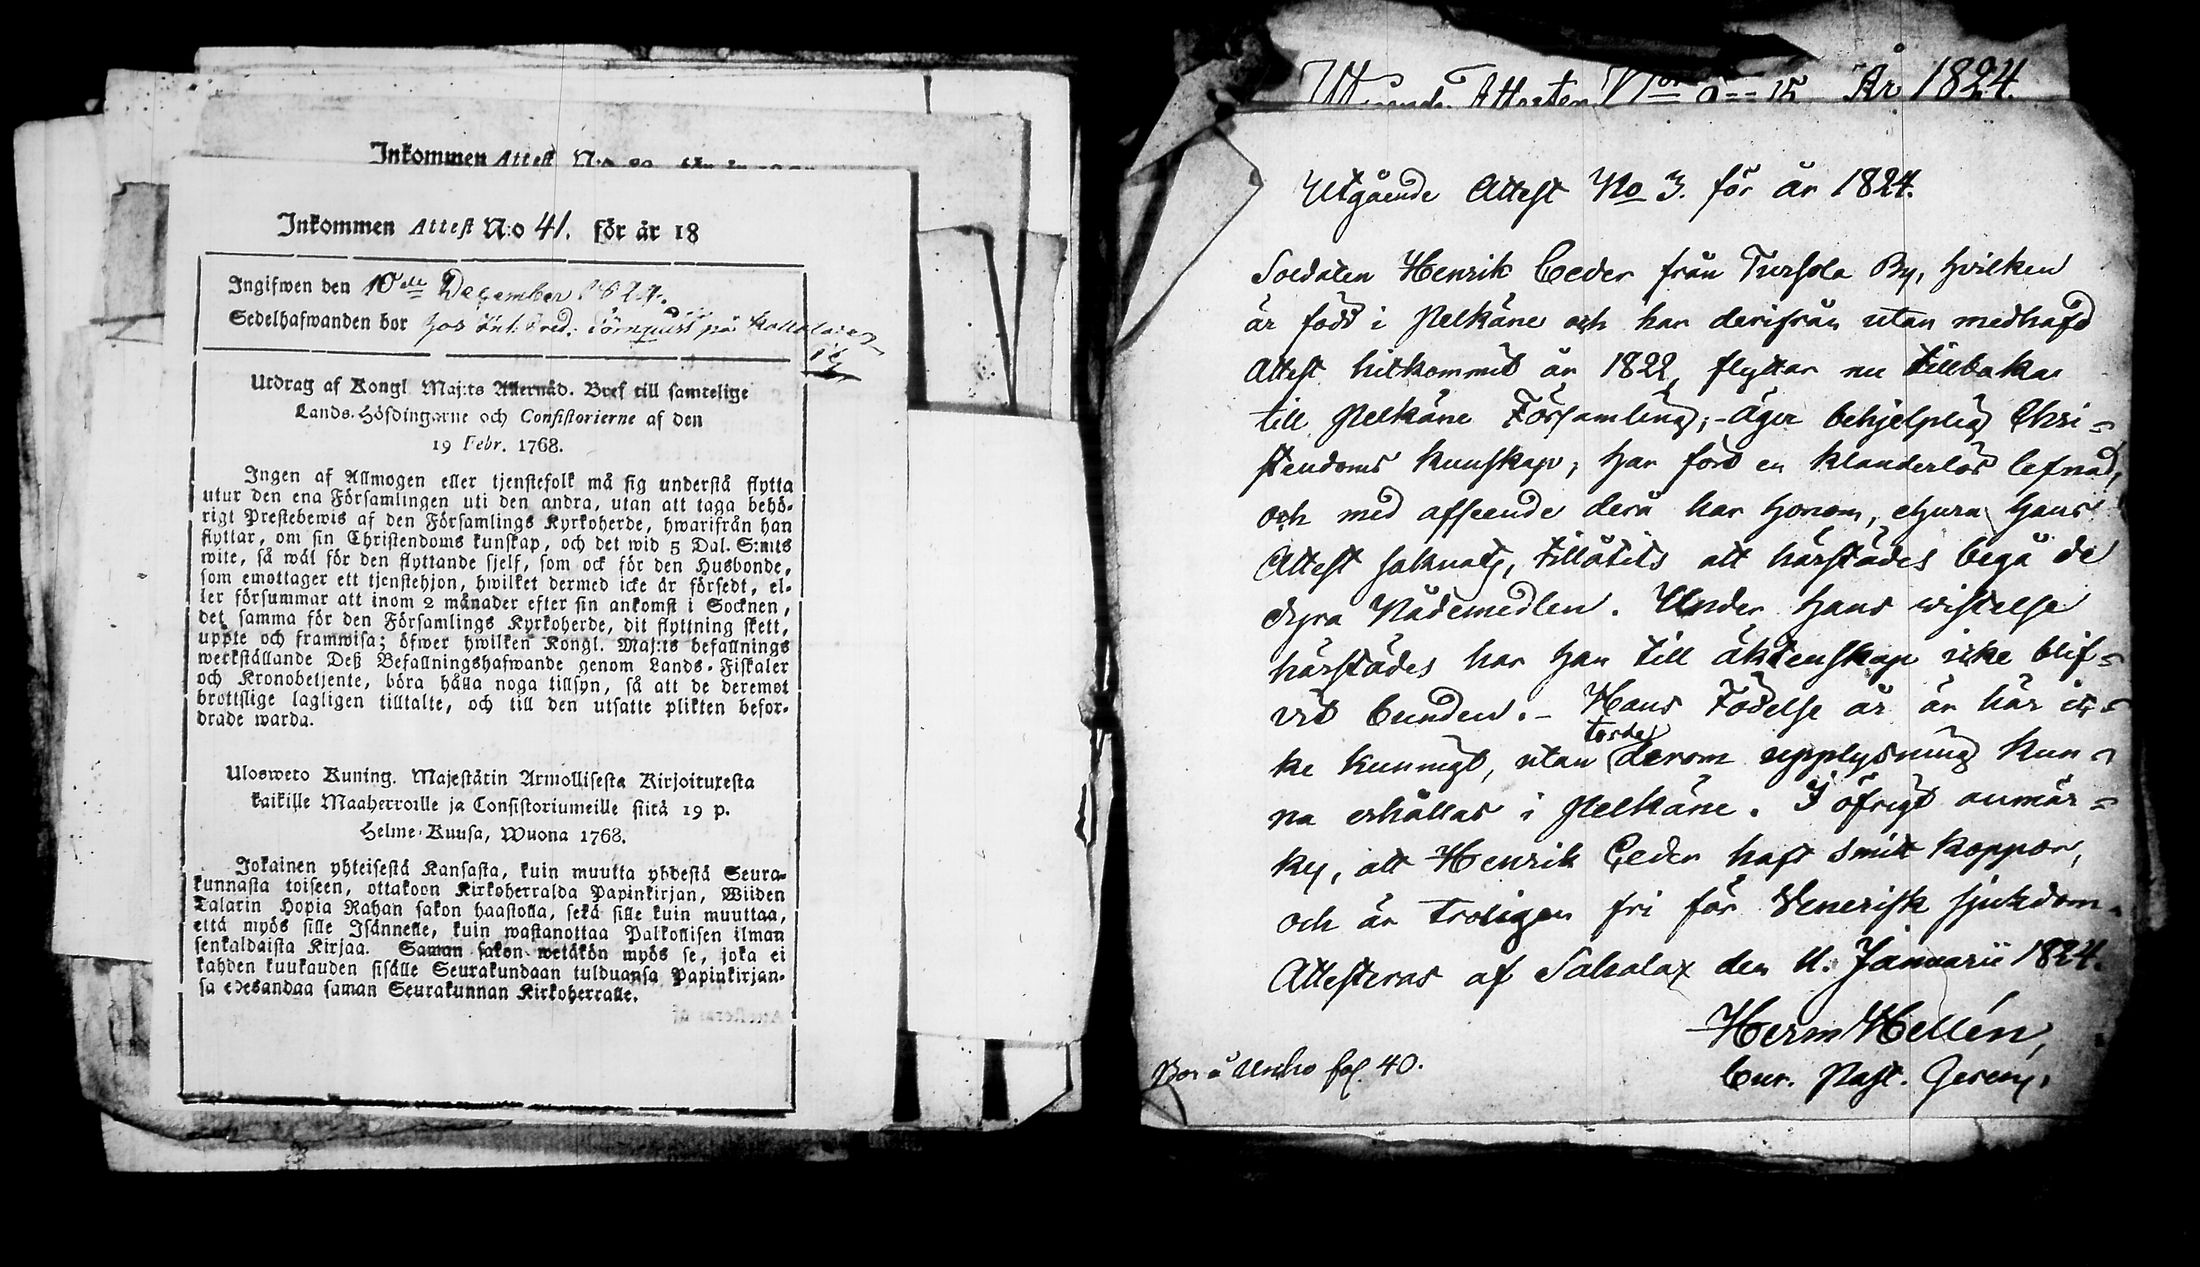 Inkommen Attest N:o
Inkommen Attest N:o 41. för år 18
Ingifwen den 10de December 1824.
Sedelhafwanden bor hos Fred: Törnquist på
Utdrag af Kongl. Maj:ts Allernåd. Bref till samtelige
Lands-Höfdingarne och Consistorierne af den
19 Febr. 1768.
Ingen af Allmogen eller tjenstefolk må sig understå flytta
utur den ena Församlingen uti den andra, utan att taga behö-
rigt Prestebewis af den Församlings Kyrkoherde, hwarifrån han
flyttar, om sin Christendoms kunskap, och det wid 5 Dal. S:mts
wite, så wäl för den flyttande sjelf, som ock för den Husbonde,
som emottager ett tjenstehjon, hwilket dermed icke är försedt, el-
ler försummar att inom 2 månader efter sin ankomst i Socknen,
det samma för den Församlings Kyrkoherde, dit flyttning skett,
uppte och framwisa; öfwer hwilken Kongl. Maj:ts befallnings
werkställande Deß Befallningshafwande genom Lands-Fiskaler
och Kronobetjente, böra hålla noga tillsyn, så att de deremot
brottslige lagligen tilltalte, och till den utsatte plikten befor-
drade warda.
Ulosweto Kuning. Majestätin Armollisesta Kirjoituxesta
kaikille Maaherroille ja Consistoriumeille siitä 19 p.
Helme-Kuusa, Wuona 1768.
Jokainen yhteisestä Kansasta, kuin muutta yhdestä Seura-
kunnasta toiseen, ottakoon Kirkoherralda Papinkirjan, Wiiden
Talarin Hopia Rahan sakon haastolla, sekä sille kuin muuttaa,
että myös sille Isännelle, kuin wastanottaa Palkollisen ilman
senkaldaista Kirjaa. Saman sakon wetäkön myös se, joka ei
kahden kuukauden sisälle Seurakundaan tulduansa Papinkirjan-
sa edesandaa saman Seurakunnan Kirkoherralle.
Attesten 15 År 1824.
Utgående Attest No 3. för år 1824.
Soldaten Henrik Ceder från Tursola By, hvilken
är född i Pelkäne och har derifrån utan medhafd
Attest hitkommit år 1822, flyttar nu tillbaka
till Pelkäne Församling; - äger behjelplig Chri-
stendoms kunskap; har fört en klanderlös lefnad,
och med afseende derå har honom, ehuru hans
Attest saknats, tillåtits att härstädes begå de
dyra Nådemedlen. Under hans wistelse
härstädes har han till äktenskap icke blif-
vit bunden. - Hans Födelse år är här ic-
ke kunnigt, utan torde derom upplysning kun-
na erhållas i Pelkäne. I öfrigt anmär-
kes, att Henrik Ceder haft smitt koppor,
och är troligen fri för Venerisk sjukdom.
Attesteras af Sahalax den 11. Januarii 1824.
Herm Hellén,
Cur. Past. Gerens.
Bor å fol. 40.